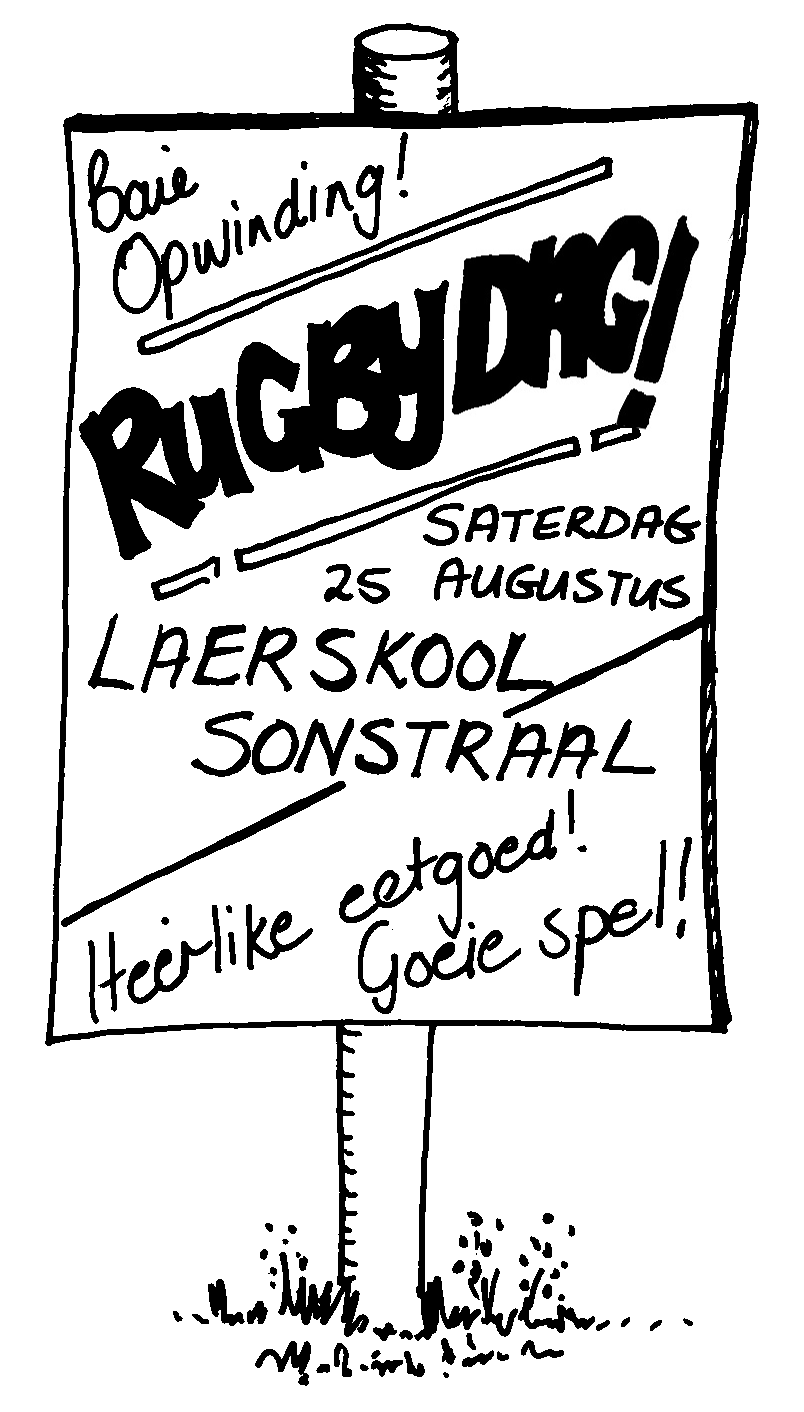 Baie
Opwinding!
RUGBY DAG!
SATERDAG
25 AUGUSTUS
LAERSKOOL
SONSTRAAL
Heerlike eetgoed!
Goeie spel!!